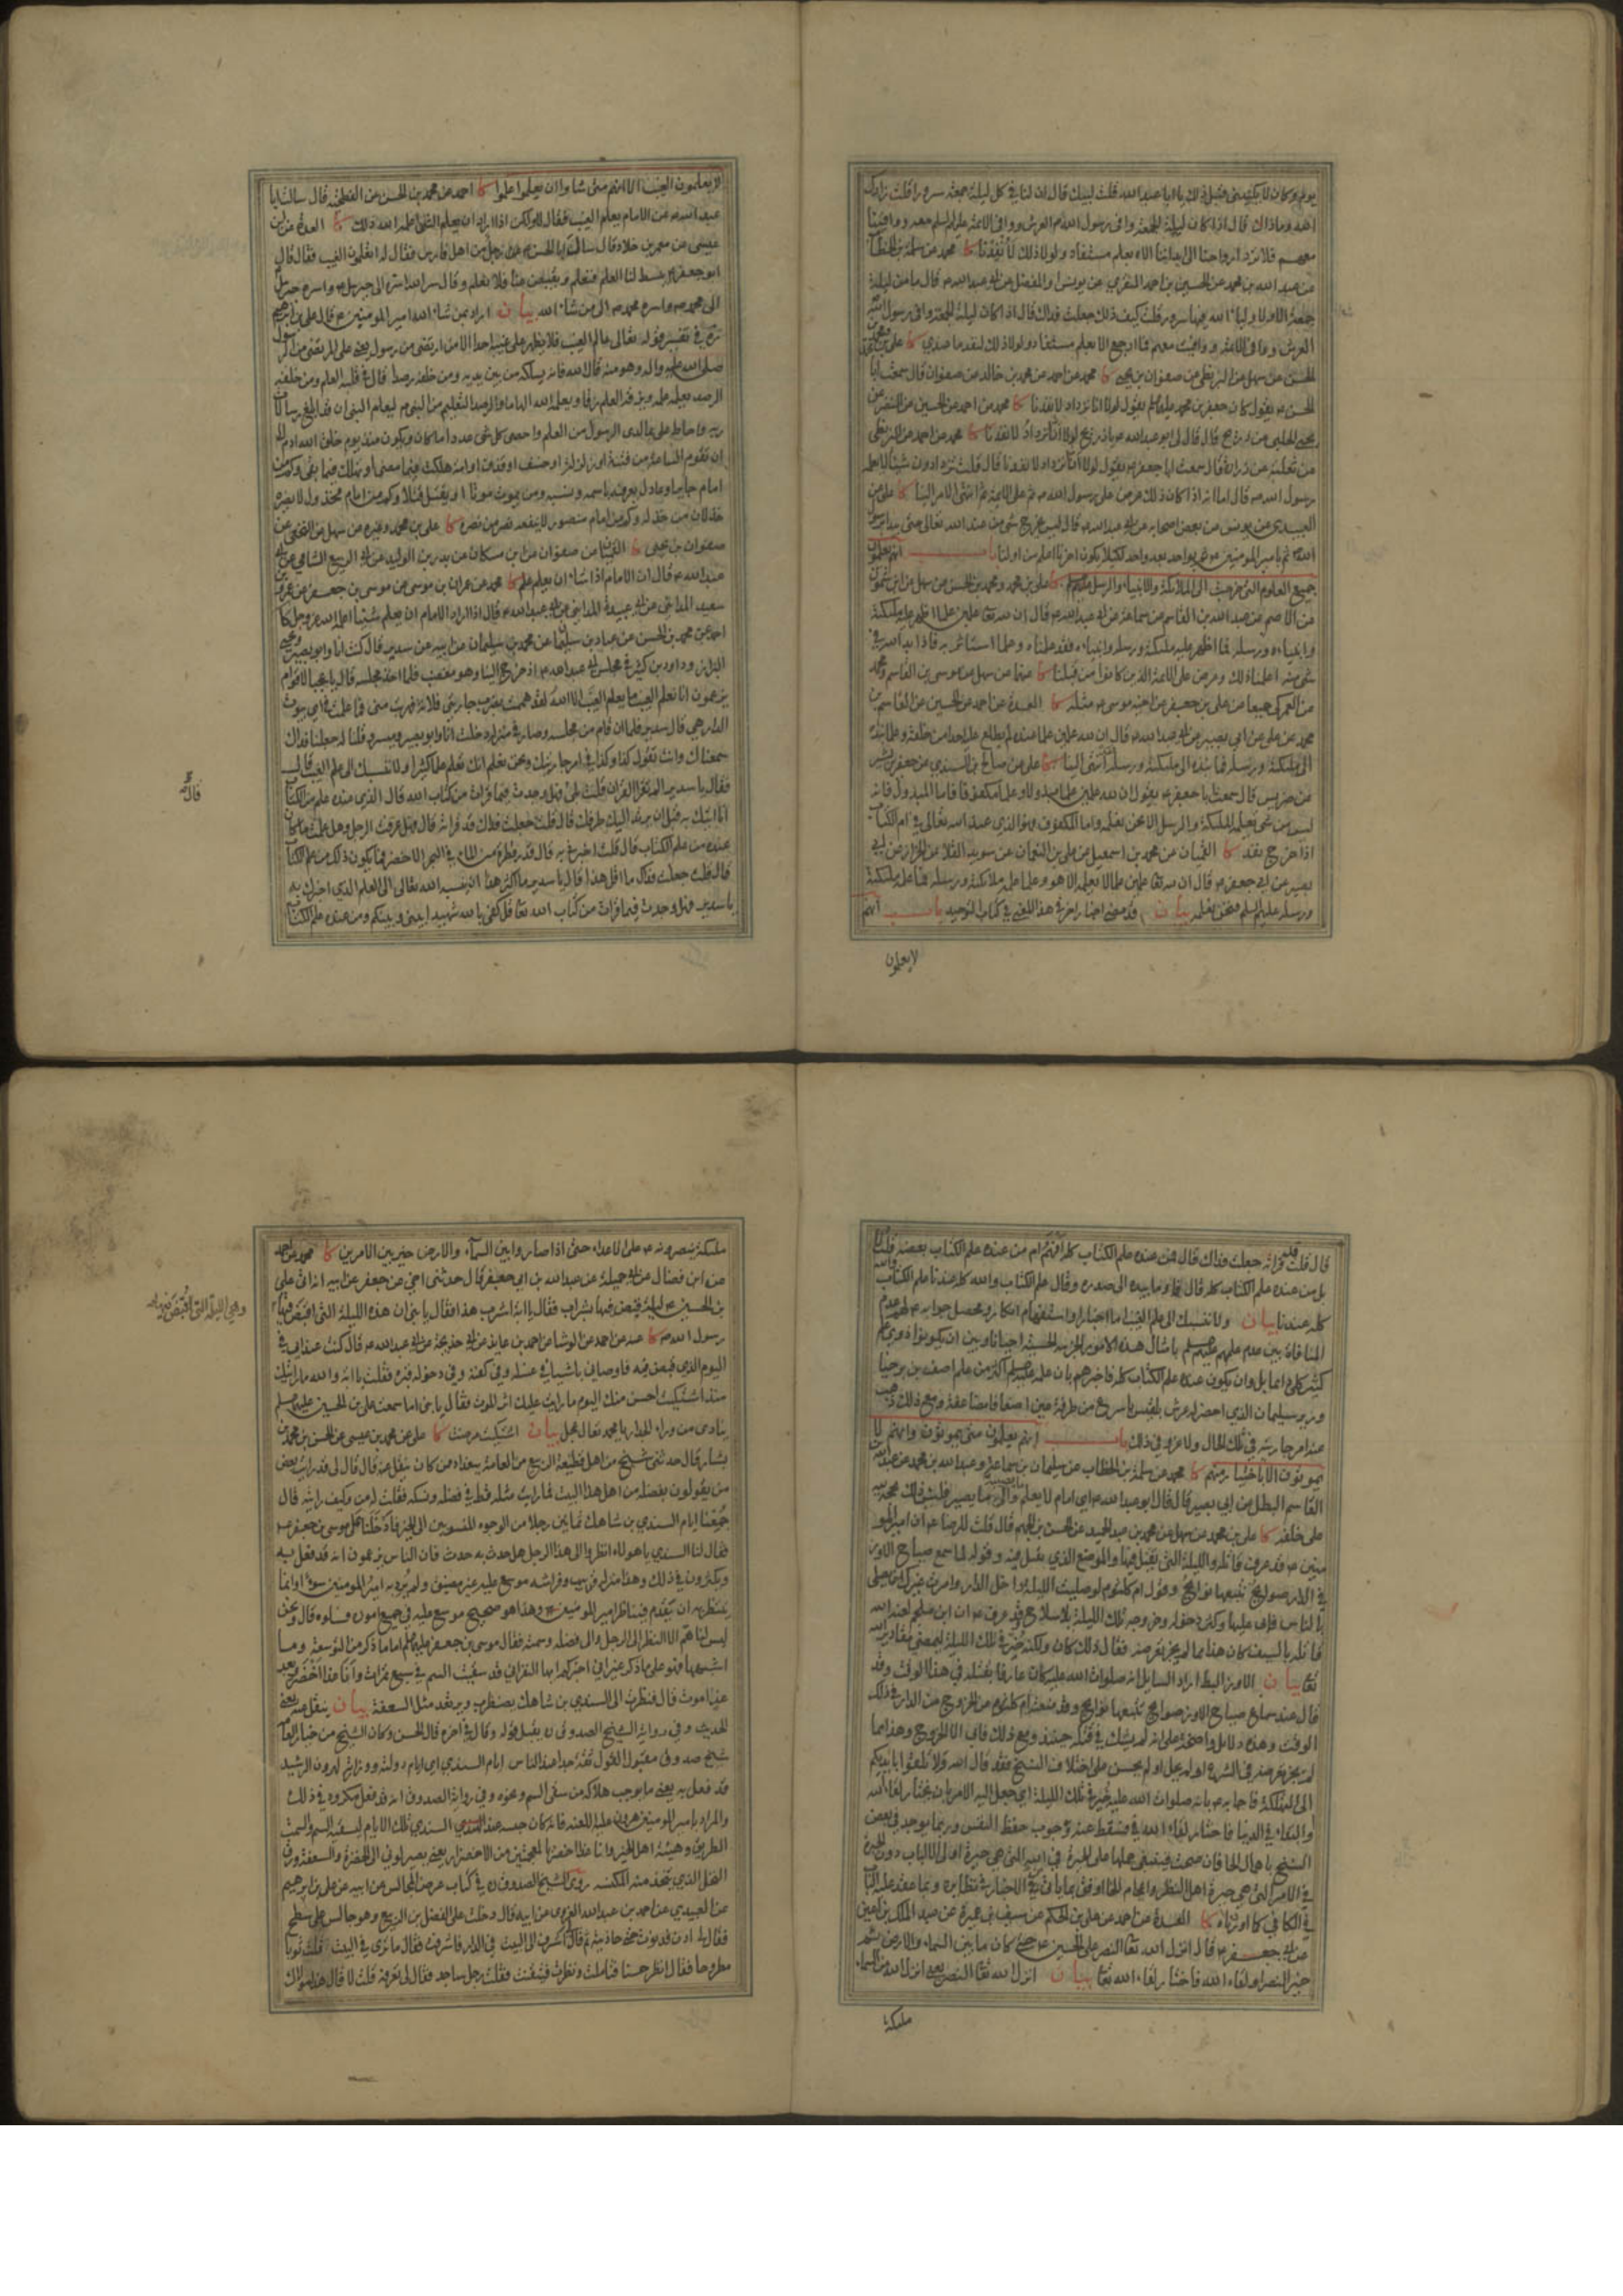 يوم وكان لا يكنيني قبل ذلك يا ابا عبد الله قلت لبيك قال ان لنا في كل ليلة جمعة سرورا قلت زادك
الله وما ذاك قال اذا كان ليلة الجمعة وافى رسول الله ص العرش ووافى الائمة عليهم السلم معه ووافينا
معهم فلا ترد ارواحنا الى ابداننا الا بعلم مستفاد ولولا ذلك لأنفدنا كا محمد عن سلمة بن الخطاب
عن عبد الله بن محمد عن الحسين بن احمد المنقري عن يونس او المفضل عن ابي عبد الله ع قال ما من ليلة
جمعة الا ولاولياء الله فيها سرور قلت كيف ذلك جعلت فداك قال اذا كان ليلة الجمعة وافى رسول الله ص
العرش ووافى الائمة ع ووافيت معهم فما ارجع الا بعلم مستفاد ولولا ذلك لنفد ما عندي كا علي بن محمد
الحسن عن سهل عن البزنطي عن صفوان بن يحيى كا محمد عن احمد عن محمد بن خالد عن صفوان قال سمعت ابا
الحسن ع يقول كان جعفر بن محمد عليهما السلم يقول لولا انا نزداد لانفدنا كا محمد عن احمد عن الحسين عن النضر عن
يحيى الحلبي عن ذريح قال قال لي ابو عبد الله ع يا ذريح لولا انا نزداد لانفدنا كا محمد عن احمد عن البزنطي
عن ثعلبة عن زرارة قال سمعت ابا جعفر ع يقول لولا انا نزداد لانفدنا قال قلت تزدادون شيئا لا يعلمه
رسول الله ص قال اما انه اذا كان ذلك عرض على رسول الله ص ثم على الائمة ثم انتهى الامر الينا كا علي عن
العبيدي عن يونس عن بعض اصحابه عن ابي عبد الله ع قال ليس يخرج شئ من عند الله تعالى حتى يبدأ برسول
الله ص ثم بامير المؤمنين ع ثم بواحد بعد واحد لكيلا يكون اخرنا اعلم من اولنا باب انهم يعلمون
جميع العلوم التي خرجت الى الملائكة والانبياء والرسل عليهم السلم كا علي بن محمد ومحمد بن الحسن عن سهل عن ابن شمون
عن الاصم عن عبد الله بن القاسم عن سماعة عن ابي عبد الله ع قال ان لله تعا علمين علما اظهر عليه ملئكته
وانبياءه ورسله فما اظهر عليه ملئكته ورسله وانبياءه فقد علمناه وعلما استاثر به فاذا بدا لله في
شئ منه اعلمنا ذلك وعرض على الائمة الذين كانوا من قبلنا كا عنهما عن سهل عن موسى بن القاسم ومحمد
عن العمركي جميعا عن علي بن جعفر عن اخيه موسى ع مثله كا العدة عن احمد عن الحسين عن القاسم بن
محمد عن علي عن ابي بصير عن ابي عبد الله ع قال ان لله علمين علما عنده لم يطلع عليه احدا من خلقه وعلما نبذه
الى ملئكته ورسله فما نبذه الى ملئكته ورسله انتهى الينا كا علي عن صالح بن السندي عن جعفر بن بشير
عن ضريس قال سمعت ابا جعفر ع يقول ان لله علمين علما مبذولا وعلما مكفوفا فاما المبذول فانه
ليس من شئ تعلمه الملئكة والرسل الا نحن نعلمه واما المكفوف فهو الذي عند الله تعالى في ام الكتاب
اذا خرج نفذ كا القميان عن محمد بن اسمعيل عن علي بن النعمان عن سويد القلا عن الخزاز عن ابي
بصير عن ابي جعفر ع قال ان لله تعا علمين علما لا يعلمه الا هو وعلما علمه ملائكته ورسله فما علمه ملئكته
ورسله عليهم السلم فنحن نعلمه بيان قد مضى اخبار اخر في هذا المعنى في كتاب التوحيد باب انهم
لا يعلمون
لا يعلمون الغيب الا انهم متى شاءوا ان يعلموا علموا كا احمد عن محمد بن الحسن عن الفطحية قال سالت ابا
عبد الله ع عن الامام يعلم الغيب فقال لا ولكن اذا اراد ان يعلم الشئ اعلمه الله ذلك كا العدة عن ابن
عيسى عن معمر بن خلاد قال سال ابا الحسن ع رجل من اهل فارس فقال له اتعلمون الغيب فقال قال
ابو جعفر ع يبسط لنا العلم فنعلم ويقبض عنا فلا نعلم وقال سر الله اسره الى جبرئيل ع واسره جبرئيل
الى محمد ص واسره محمد ص الى من شاء الله بيان اراد بمن شاء الله امير المؤمنين ع قال علي بن ابراهيم
ره في تفسير قوله تعالى عالم الغيب فلا يظهر على غيبه احدا الا من ارتضى من رسول يعني علي المرتضى من الرسول
صلى الله عليه واله وهو منه قال الله فانه يسلك من بين يديه ومن خلفه رصدا قال في قلبه العلم ومن خلفه
الرصد يعلمه علمه ويزقه العلم زقا ويعلمه الله الهاما والرصد التعليم من النبي ص ليعلم النبي ان قد ابلغ رسالات
ربه واحاط علي بما لدى الرسول من العلم واحصى كل شئ عددا ما كان ويكون منذ يوم خلق الله ادم الى
ان تقوم الساعة من فتنة او زلزلة او خسف او قذف او امة هلكت فيما مضى او تهلك فيما بقي وكم من
امام جاير او عادل يعرفه باسمه ونسبه ومن يموت موتا او يقتل قتلا وكم من امام مخذول لا يضره
خذلان من خذله وكم من امام منصور لا ينفعه نصر من نصره كا علي بن محمد وغيره عن سهل عن النخعي عن
صفوان بن يحيى كا القميان عن صفوان عن ابن مسكان عن بدر بن الوليد عن ابي الربيع الشامي عن ابي
عبد الله ع قال ان الامام اذا شاء ان يعلم علم كا محمد عن عمران بن موسى عن موسى بن جعفر عن عمرو بن
سعيد المدائني عن ابي عبيدة المدائني عن ابي عبد الله ع قال اذا اراد الامام ان يعلم شيئا اعلمه الله عز وجل كا
احمد عن محمد بن الحسن عن عباد بن سليمان عن محمد بن سليمان عن ابيه عن سدير قال كنت انا وابو بصير ويحيى
البزاز وداود بن كثير في مجلس ابي عبد الله ع اذ خرج الينا وهو مغضب فلما اخذ مجلسه قال يا عجبا لاقوام
يزعمون انا نعلم الغيب ما يعلم الغيب الا الله لقد هممت بضرب جاريتي فلانة فهربت مني فما علمت في اي بيوت
الدار هي قال سدير فلما ان قام من مجلسه وصار في منزله دخلت انا وابو بصير وميسر وقلنا له جعلنا فداك
سمعناك وانت تقول كذا وكذا في امر جاريتك ونحن نعلم انك تعلم علما كثيرا ولا ننسبك الى علم الغيب قال
فقال يا سدير الم تقرا القران قلت بلى قال فهل وجدت فيما قرات من كتاب الله قال الذي عنده علم من الكتاب
انا اتيك به قبل ان يرتد اليك طرفك قال قلت جعلت فداك قد قراته قال فهل عرفت الرجل وهل علمت ما كان
عنده من علم الكتاب قال قلت اخبرني به قال قدر قطرة من الماء في البحر الاخضر فما يكون ذلك من علم الكتاب
قال قلت جعلت فداك ما اقل هذا فقال يا سدير ما اكثر هذا ان ينسبه الله تعالى الى العلم الذي اخبرك به
يا سدير فهل وجدت فيما قرات من كتاب الله تعا قل كفى بالله شهيدا بيني وبينكم ومن عنده علم الكتاب
قال قلت قد قراته جعلت فداك قال فمن عنده علم الكتاب كله افهم ام من عنده علم الكتاب بعضه قلت لا
بل من عنده علم الكتاب كله قال فاوما بيده الى صدره وقال علم الكتاب والله كله عندنا علم الكتاب والله
كله عندنا بيان ولا ننسبك الى علم الغيب اما اخبار او استفهام انكار ومحصل جوابه ع لهم عدم
المنافاة بين عدم علمهم عليهم السلم بامثال هذه الامور الجزئية الخسيسة احيانا وبين ان يكونوا ذوي علم
كثير كلي وان يكون عنده علم الكتاب كله فاخبرهم بان علمه عليه السلم اكثر من علم اصف بن برخيا
وزير سليمان الذي احضر له عرش بلقيس باسرع من طرفة عين اضعافا مضاعفة ومع ذلك ذهب
عنه امر جاريته في تلك الحال ولا غرو في ذلك باب انهم يعلمون متى يموتون وانهم لا
يموتون الا باختيار منهم كا محمد عن سلمة بن الخطاب عن سليمان بن سماعة وعبد الله بن محمد عن عبد الله بن
القاسم البطل عن ابي بصير قال قال ابو عبد الله ع اي امام لا يعلم ما يصيبه والى ما يصير فليس ذلك بحجة لله
على خلقه كا علي بن محمد عن سهل عن محمد بن عبد الحميد عن الحسن بن الجهم قال قلت للرضا ع ان امير المو
منين ع قد عرف قاتله والليلة التي يقتل فيها والموضع الذي يقتل فيه وقوله لما سمع صياح الاوز
في الدار صوايح تتبعها نوايح وقول ام كلثوم لو صليت الليلة داخل الدار وامرت غيرك يصلي
بالناس فابى عليها وكثر دخوله وخروجه تلك الليلة بلا سلاح وقد عرف ع ان ابن ملجم لعنه الله
قاتله بالسيف كان هذا مما لم يجز تعرضه فقال ذلك كان ولكنه خير في تلك الليلة لتمضي مقادير الله
تعا بيان الاوز البط اراد السايل انه صلوات الله عليه كان عارفا بقتله في هذا الوقت وقد
قال عند سماع صياح الاوز صوايح تتبعها نوايح وقد منعته ام كلثوم من الخروج من الدار في ذلك
الوقت وهذه دلايل واضحة على انه لم يشك في قتله حينئذ ومع ذلك فابى الا الخروج وهذا مما
لم يجز تعرضه في الشرع او لم يحل او لم يحسن على اختلاف النسخ فقد قال الله ولا تلقوا بايديكم
الى التهلكة فاجابه ع بانه صلوات الله عليه خير في تلك الليلة اي جعل اليه الامر بان يختار لقاء الله
والبقاء في الدنيا فاختار لقاء الله فسقط عنه وجوب حفظ النفس وربما يوجد في بعض
النسخ باهمال الحاء فان صحت فينبغي حملها على الحيرة في الله التي هي حيرة اولي الالباب دون الحيرة
في الامر التي هي حيرة اهل النظر واعجام الخاء اوفق بما ياتي في الاخبار في نظايره وبما عقد عليه الباب
في الكافي كما اوردناه كا العدة عن احمد عن علي بن الحكم عن سيف بن عميرة عن عبد الملك بن اعين
عن ابي جعفر ع قال انزل الله تعا النصر على الحسين ع حتى كان ما بين السماء والارض ثم
خير النصر او لقاء الله فاختار لقاء الله تعا بيان انزل الله تعا النصر يعني انزل الله من السماء
ملئكة
ملئكة ينصرونه ع على الاعداء حتى اذا صاروا بين السماء والارض خير بين الامرين كا محمد عن احمد
عن ابن فضال عن ابي جميلة عن عبد الله بن ابي جعفر قال حدثني اخي عن جعفر عن ابيه انه اتى علي
بن الحسين ع ليلة قبض فيها بشراب فقال يا ابه اشرب هذا فقال يا بني ان هذه الليلة التي اقبض فيها
رسول الله ص كا عنه عن احمد عن الوشا عن احمد بن عايذ عن ابي خديجة عن ابي عبد الله ع قال كنت عند ابي في
اليوم الذي قبض فيه فاوصاني باشياء في غسله وفي كفنه وفي دخوله قبره فقلت يا ابه والله ما رايتك
منذ اشتكيت احسن منك اليوم ما رايت عليك اثر الموت فقال يا بني اما سمعت علي بن الحسين عليهما السلم
ينادي من وراء الجدار يا محمد تعال عجل بيان اشتكيت مرضت كا علي عن محمد بن عيسى عن الحسن بن محمد بن
بشار قال حدثني شيخ من اهل قطيعة الربيع من العامة ببغداد ممن كان ينقل عنه قال قال لي قد رايت بعض
من يقولون بفضله من اهل هذا البيت فما رايت مثله قط في فضله ونسكه فقلت له من وكيف رايته قال
جمعنا ايام السندي بن شاهك ثمانين رجلا من الوجوه المنسوبين الى الخير فادخلنا على موسى بن جعفر ع
فقال لنا السندي يا هؤلاء انظروا الى هذا الرجل هل حدث به حدث فان الناس يزعمون انه قد فعل به
ويكثرون في ذلك وهذا منزله وفراشه موسع عليه غير مضيق ولم يرد به امير المؤمنين سوءا وانما
ينتظر به ان يقدم فيناظر امير المؤمنين وهذا هو صحيح موسع عليه في جميع اموره فسلوه قال ونحن
ليس لنا هم الا النظر الى الرجل والى فضله وسمته فقال موسى بن جعفر عليهما السلم اما ما ذكر من التوسعة وما
اشبهها فهو على ما ذكر غير اني اخبركم ايها النفر اني قد سقيت السم في سبع تمرات وانا غدا اخضر وبعد
غد اموت قال فنظرت الى السندي بن شاهك يضطرب ويرتعد مثل السعفة بيان ينقل عنه يعني
الحديث وفي رواية الشيخ الصدوق ره يقبل قوله وكما في اخره قال الحسن وكان الشيخ من خيار العامة
شيخ صدوق مقبول القول ثقة جدا عند الناس ايام السندي اي ايام دولته ووزارته لهرون الرشيد
قد فعل به يعني ما يوجب هلاكه من سقي السم ونحوه وفي رواية الصدوق انه قد فعل مكروه في ذلك
والمراد بامير المؤمنين هرون عليه اللعنة فانه كان حبسه عند السندي تلك الايام ليسقيه السم والسمت
الطريق وهيئة اهل الخير وانا غدا اخضر بالمعجمتين من الاخضرار يعني يصير لوني الى الخضرة والسعفة ورق
النخل الذي يتخذ منه المكنسة روى الشيخ الصدوق ره في كتاب عرض المجالس عن ابيه عن علي بن ابراهيم
عن العبيدي عن احمد بن عبد الله الغروي عن ابيه قال دخلت على الفضل بن الربيع وهو جالس على سطح
فقال لي ادن فدنوت حتى حاذيته ثم قال اشرف الى البيت في الدار فاشرفت فقال ما ترى في البيت قلت ثوبا
مطروحا فقال انظر حسنا فتاملت ونظرت فتيقنت فقلت رجل ساجد فقال لي تعرفه قلت لا قال هذا مولاك
قال
وهي الليلة التي قبض فيها